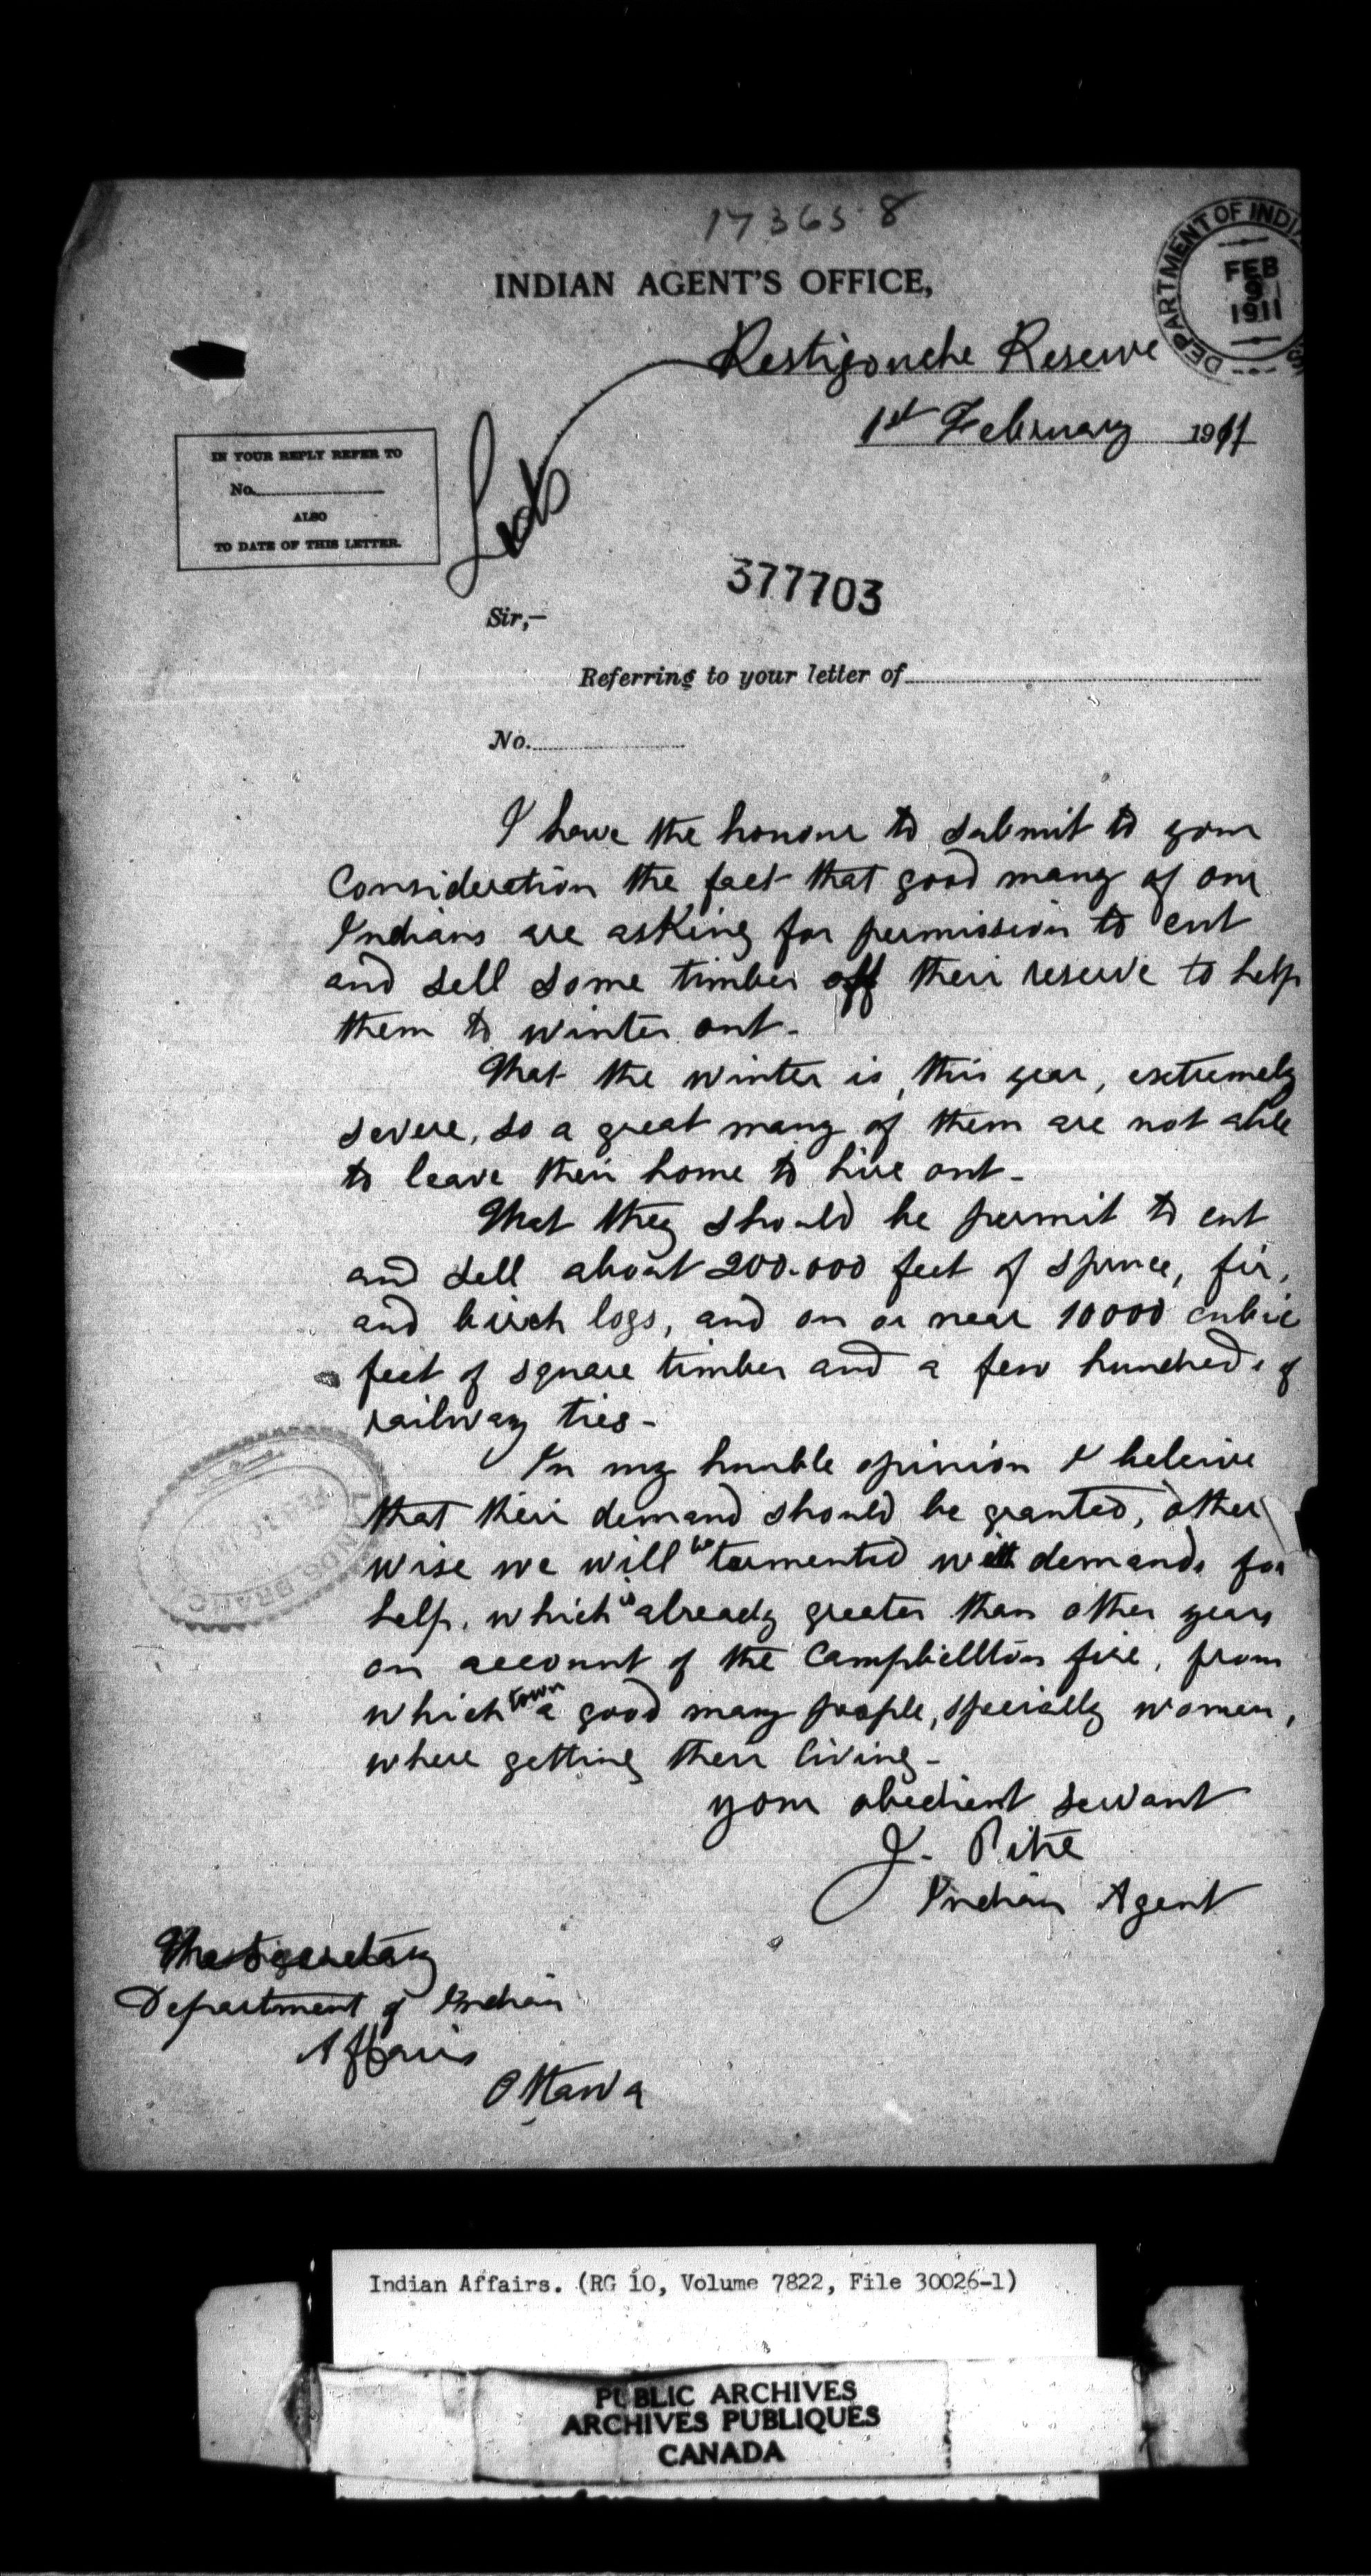 17365-8
INDIAN AGENT'S OFFICE,
DEPARTMENT OF INDI
FEB
9
1911
Restigouche Reserve
1st February 1911
IN YOUR REPLY REFER TO
No.
ALSO
TO DATE OF THIS LETTER.
377703
Sir,—
Referring to your letter of
No.
I have the honour to submit to your
Consideration the fact that good many of our
Indians are asking for permission to cut
and sell some timber off their reserve to help
them to winter out-
That the winter is, this year, extremely
severe, so a great many of them are not able
to leave their home to hire out-
That they should be permit to cut
and sell about 200.000 feet of spruce, fir,
and birch logs, and on or near 10000 cubic
feet of square timber and a few hundreds of
railway ties-
In my humble opinion I beleive
that their demand should be granted, other
wise we will be tormented with demands for
help, which is already greater than other years
on account of the Campbellton fire, from
which town a good many people, specially women,
where getting their living-
your obedient servant
J. Pitre
Indian Agent
The Secretary
Department of Indian
Affairs
Ottawa
LANDS BRANC
Indian Affairs. (RG 10, Volume 7822, File 30026-1)
PUBLIC ARCHIVES
ARCHIVES PUBLIQUES
CANADA